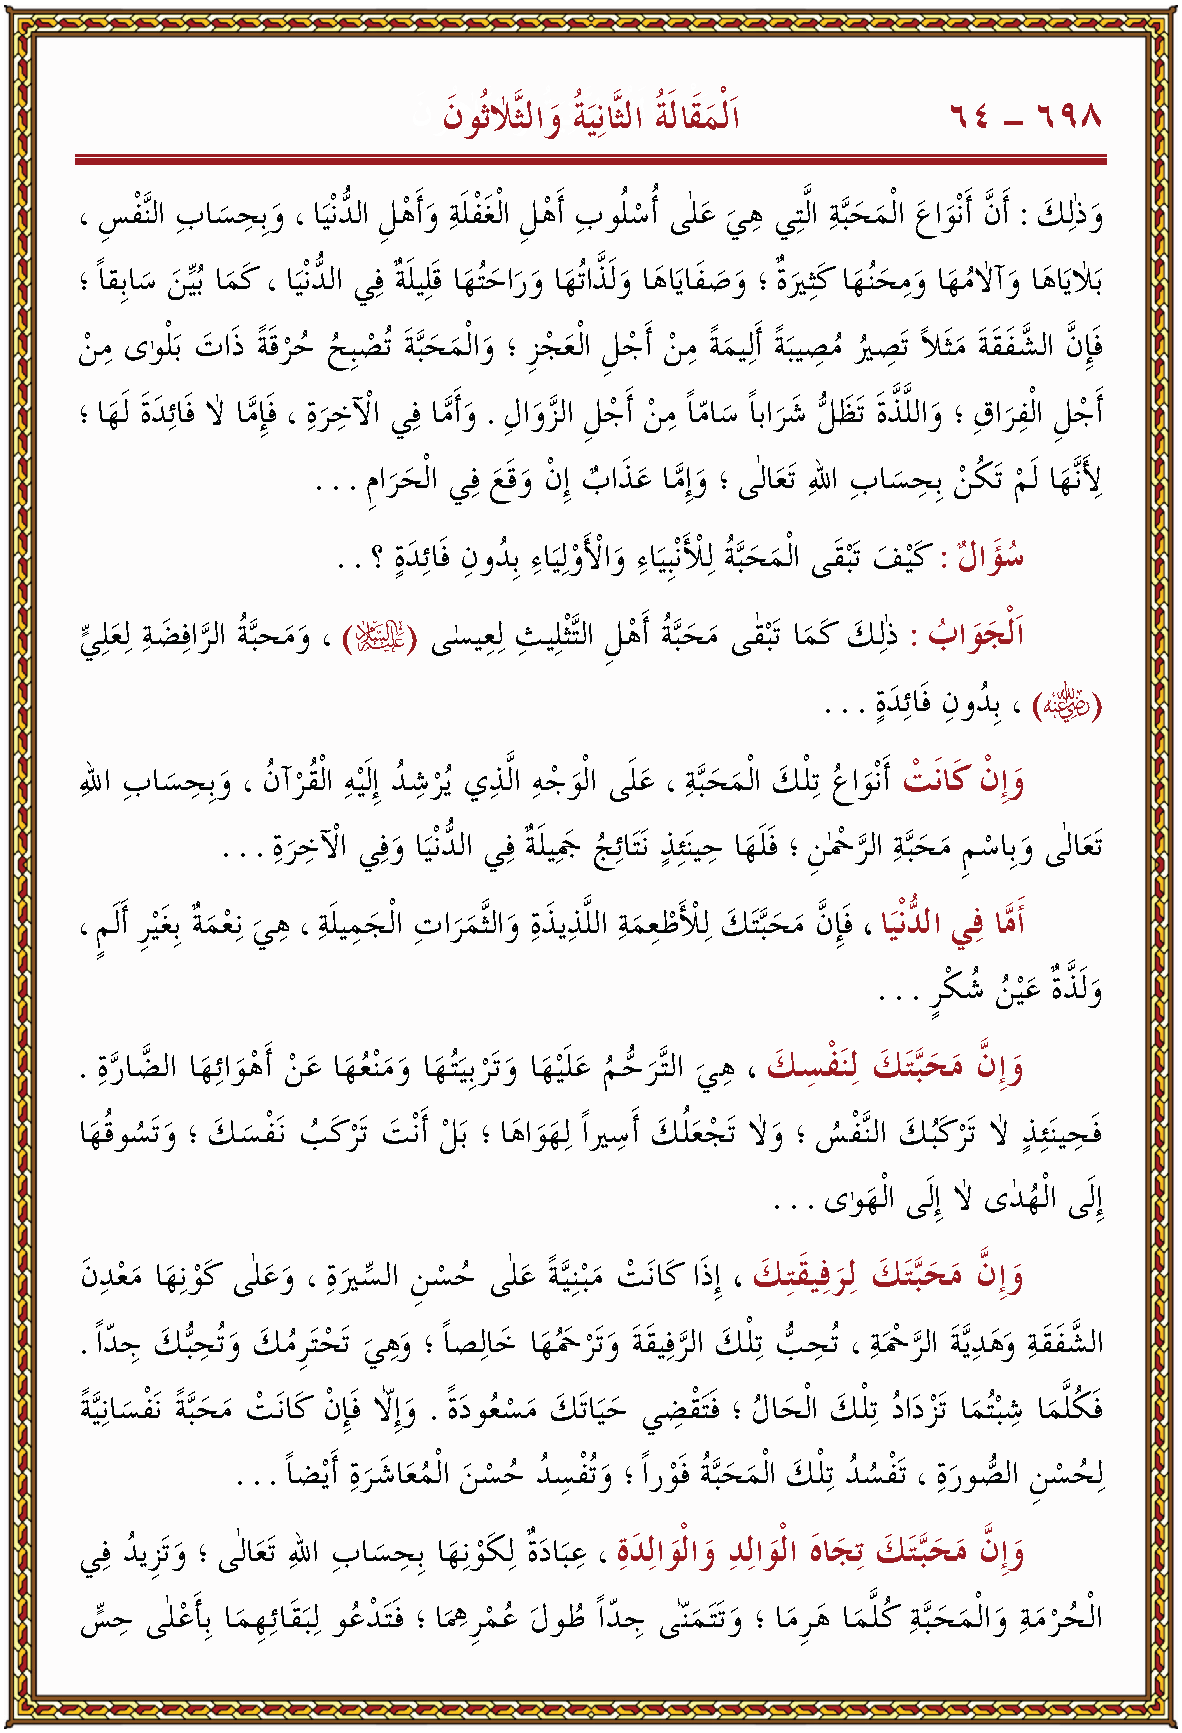 ٦٩٨ – ٦٤ اَلْمَقَالَةُ الثَّانِيَةُ وَالثَّلاٰثُونَ
وَذٰلِكَ : أَنَّ أَنْوَاعَ الْمَحَبَّةِ الَّتِي هِيَ عَلٰى أُسْلُوبِ أَهْلِ الْغَفْلَةِ وَأَهْلِ الدُّنْيَا ، وَبِحِسَابِ النَّفْسِ ،
بَلاٰيَاهَا وَآلاٰمُهَا وَمِحَنُهَا كَثِيرَةٌ ؛ وَصَفَايَاهَا وَلَذَّاتُهَا وَرَاحَتُهَا قَلِيلَةٌ فِي الدُّنْيَا ، كَمَا بُيِّنَ سَابِقاً ؛
فَإِنَّ الشَّفَقَةَ مَثَلاً تَصِيرُ مُصِيبَةً أَلِيمَةً مِنْ أَجْلِ الْعَجْزِ ؛ وَالْمَحَبَّةَ تُصْبِحُ حُرْقَةً ذَاتَ بَلْوٰى مِنْ
أَجْلِ الْفِرَاقِ ؛ وَاللَّذَّةَ تَظَلُّ شَرَاباً سَامّاً مِنْ أَجْلِ الزَّوَالِ . وَأَمَّا فِي الْآخِرَةِ ، فَإِمَّا لاٰ فَائِدَةَ لَهَا ؛
لِأَنَّهَا لَمْ تَكُنْ بِحِسَابِ اللهِ تَعَالٰى ؛ وَإِمَّا عَذَابٌ إِنْ وَقَعَ فِي الْحَرَامِ . . .
سُؤَالٌ : كَيْفَ تَبْقَى الْمَحَبَّةُ لِلْأَنْبِيَاءِ وَالْأَوْلِيَاءِ بِدُونِ فَائِدَةٍ ؟ . .
اَلْجَوَابُ : ذٰلِكَ كَمَا تَبْقٰى مَحَبَّةُ أَهْلِ التَّثْلِيثِ لِعِيسٰى (عَلَيْهِ السَّلَامُ) ، وَمَحَبَّةُ الرَّافِضَةِ لِعَلِيٍّ
(رَضِيَ اللهُ عَنْهُ) ، بِدُونِ فَائِدَةٍ . . .
وَإِنْ كَانَتْ أَنْوَاعُ تِلْكَ الْمَحَبَّةِ ، عَلَى الْوَجْهِ الَّذِي يُرْشِدُ إِلَيْهِ الْقُرْآنُ ، وَبِحِسَابِ اللهِ
تَعَالٰى وَبِاسْمِ مَحَبَّةِ الرَّحْمٰنِ ؛ فَلَهَا حِينَئِذٍ نَتَائِجُ جَمِيلَةٌ فِي الدُّنْيَا وَفِي الْآخِرَةِ . . .
أَمَّا فِي الدُّنْيَا ، فَإِنَّ مَحَبَّتَكَ لِلْأَطْعِمَةِ اللَّذِيذَةِ وَالثَّمَرَاتِ الْجَمِيلَةِ ، هِيَ نِعْمَةٌ بِغَيْرِ أَلَمٍ ،
وَلَذَّةٌ عَيْنُ شُكْرٍ . . .
وَإِنَّ مَحَبَّتَكَ لِنَفْسِكَ ، هِيَ التَّرَحُّمُ عَلَيْهَا وَتَرْبِيَتُهَا وَمَنْعُهَا عَنْ أَهْوَائِهَا الضَّارَّةِ .
فَحِينَئِذٍ لاَ تَرْكَبُكَ النَّفْسُ ؛ وَلاَ تَجْعَلُكَ أَسِيراً لِهَوَاهَا ؛ بَلْ أَنْتَ تَرْكَبُ نَفْسَكَ ؛ وَتَسُوقُهَا
إِلَى الْهُدٰى لاٰ إِلَى الْهَوٰى . . .
وَإِنَّ مَحَبَّتَكَ لِرَفِيقَتِكَ ، إِذَا كَانَتْ مَبْنِيَّةً عَلٰى حُسْنِ السِّيرَةِ ، وَعَلٰى كَوْنِهَا مَعْدِنَ
الشَّفَقَةِ وَهَدِيَّةَ الرَّحْمَةِ ، تُحِبُّ تِلْكَ الرَّفِيقَةَ وَتَرْحَمُهَا خَالِصاً ؛ وَهِيَ تَحْتَرِمُكَ وَتُحِبُّكَ جِدّاً .
فَكُلَّمَا شِبْتُمَا تَزْدَادُ تِلْكَ الْحَالُ ؛ فَتَقْضِي حَيَاتَكَ مَسْعُودَةً . وَإِلاّٰ فَإِنْ كَانَتْ مَحَبَّةً نَفْسَانِيَّةً
لِحُسْنِ الصُّورَةِ ، تَفْسُدُ تِلْكَ الْمَحَبَّةُ فَوْراً ؛ وَتُفْسِدُ حُسْنَ الْمُعَاشَرَةِ أَيْضاً . . .
وَإِنَّ مَحَبَّتَكَ تِجَاهَ الْوَالِدِ وَالْوَالِدَةِ ، عِبَادَةٌ لِكَوْنِهَا بِحِسَابِ اللهِ تَعَالٰى ؛ وَتَزِيدُ فِي
الْحُرْمَةِ وَالْمَحَبَّةِ كُلَّمَا هَرِمَا ؛ وَتَتَمَنّٰى جِدّاً طُولَ عُمْرِهِمَا ؛ فَتَدْعُو لِبَقَائِهِمَا بِأَعْلٰى حِسٍّ